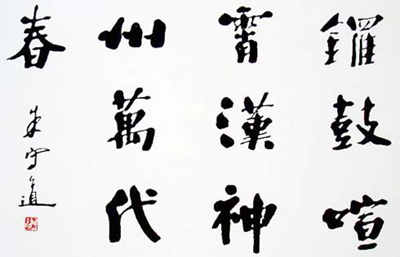 鑼鼓喧
霄漢神
州萬代
春
朱守道